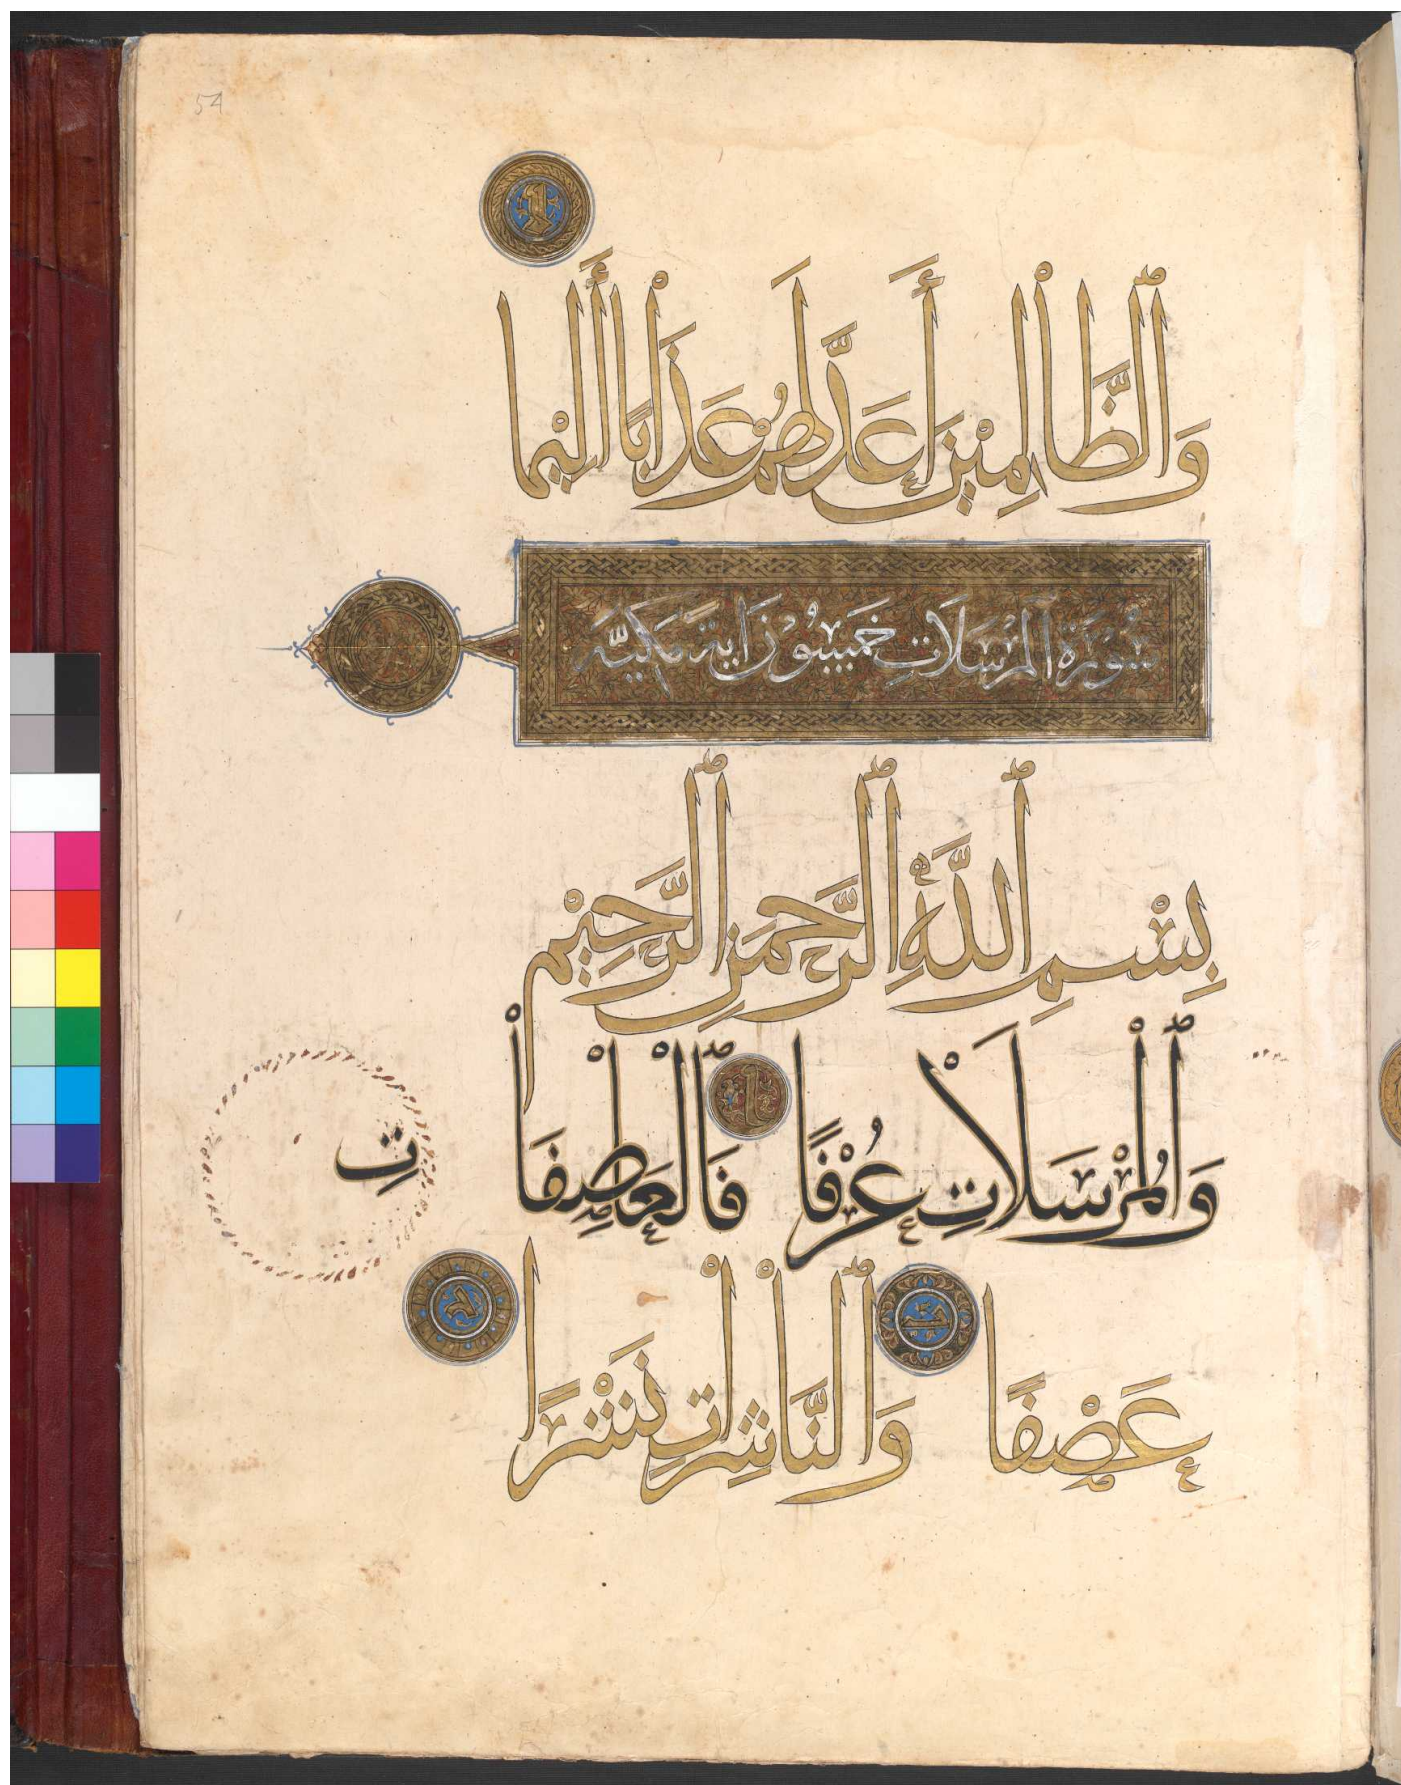 54
وَٱلظَّالِمِيْنَ أَعَدَّ لَهُمْ عَذَابًا أَلِيْمًا
سُوْرَةُ الْمُرْسَلَاتِ خَمْسُوْنَ اٰيَةً مَكِّيَّة
بِسْمِ ٱللَّهِ ٱلرَّحْمَنِ ٱلرَّحِيْمِ
وَٱلْمُرْسَلَاتِ عُرْفًا فَٱلْعَاصِفَاتِ
عَصْفًا وَٱلنَّاشِرَاتِ نَشْرًا